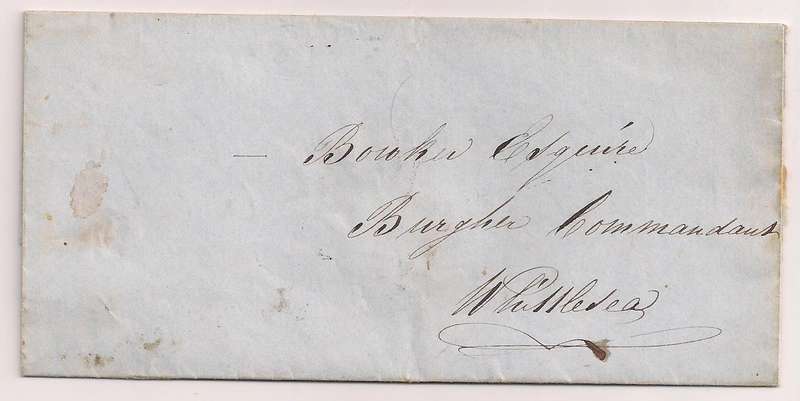 — Bowker Esquire
Burgher Commandant
Whittlesea